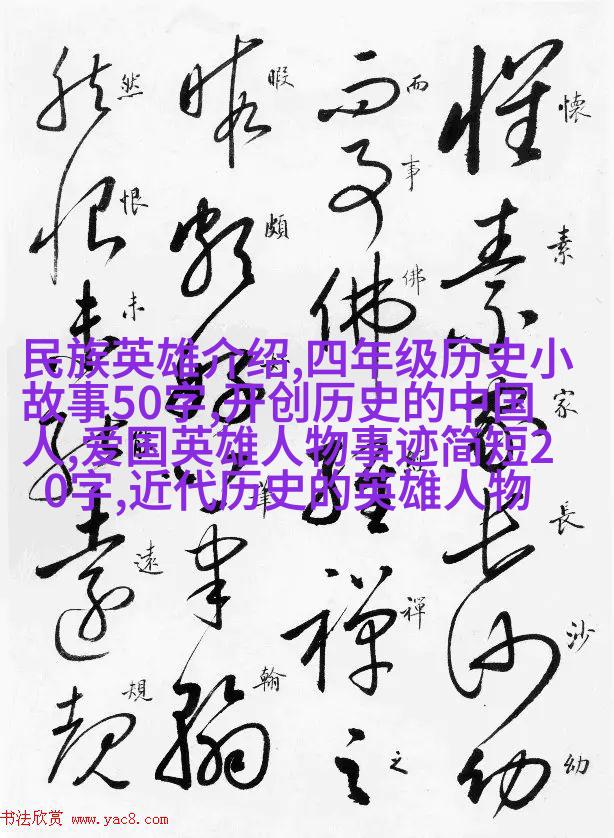 懷素家長沙幼
而事佛經禪之
暇頗好筆翰
然恨未能遠規
民族英雄介绍,四年级历史小
故事50字,开创历史的中国
人,爱国英雄人物事迹简短2
0字,近代历史的英雄人物
书法欣赏 www.yac8.com